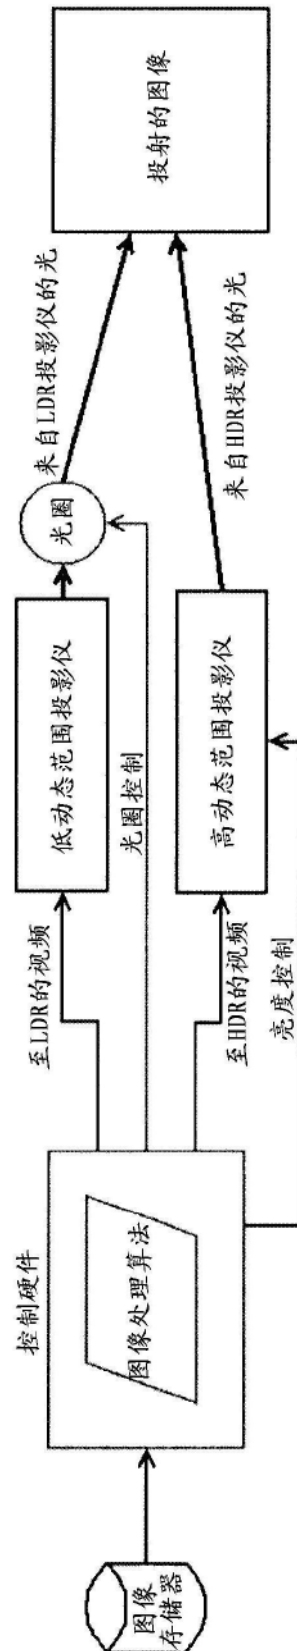 图像
存储器
控制硬件
图像处理算法
至LDR的视频
光圈控制
至HDR的视频
亮度控制
低动态范围投影仪
高动态范围投影仪
光圈
来自LDR投影仪的光
来自HDR投影仪的光
投射的图像